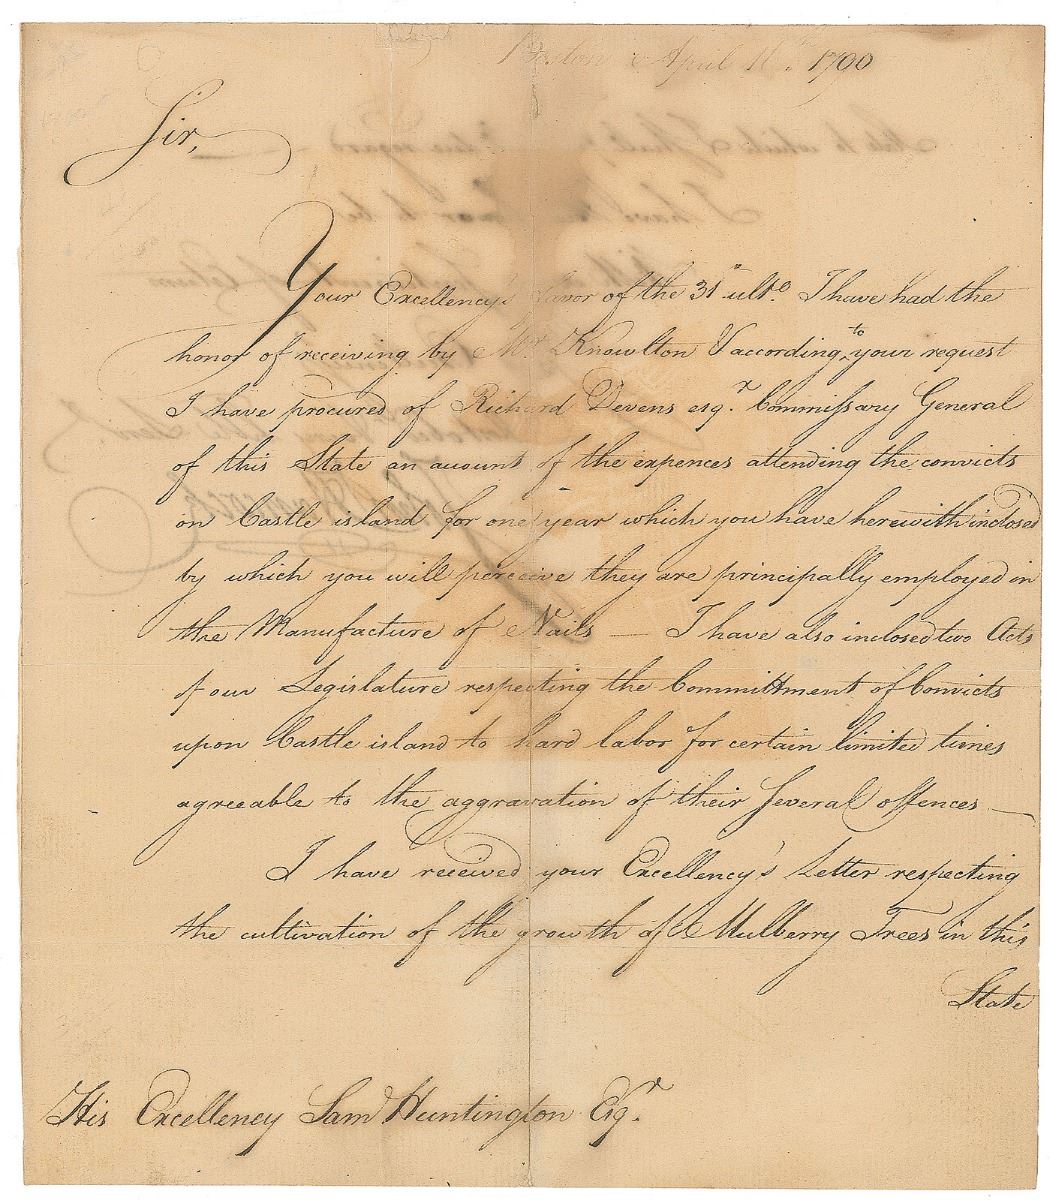 Boston April 16th. 1790
Sir,
Your Excellency's favor of the 31st ulto. I have had the
honor of receiving by Mr. Knowlton & according to your request
I have procured of Richard Devens esqr. Commissary General
of this State an acount of the expences attending the convicts
on Castle island for one year which you have herewith inclosed
by which you will perceive they are principally employed in
the Manufacture of Nails — I have also inclosed two Acts
of our Legislature respecting the Committment of Convicts
upon Castle island to hard labor for certain limited times
agreeable to the aggravation of their several offences —
I have received your Excellency's Letter respecting
the cultivation of the growth of Mulberry Trees in this
State
His Excellency Saml Huntington Esqr.